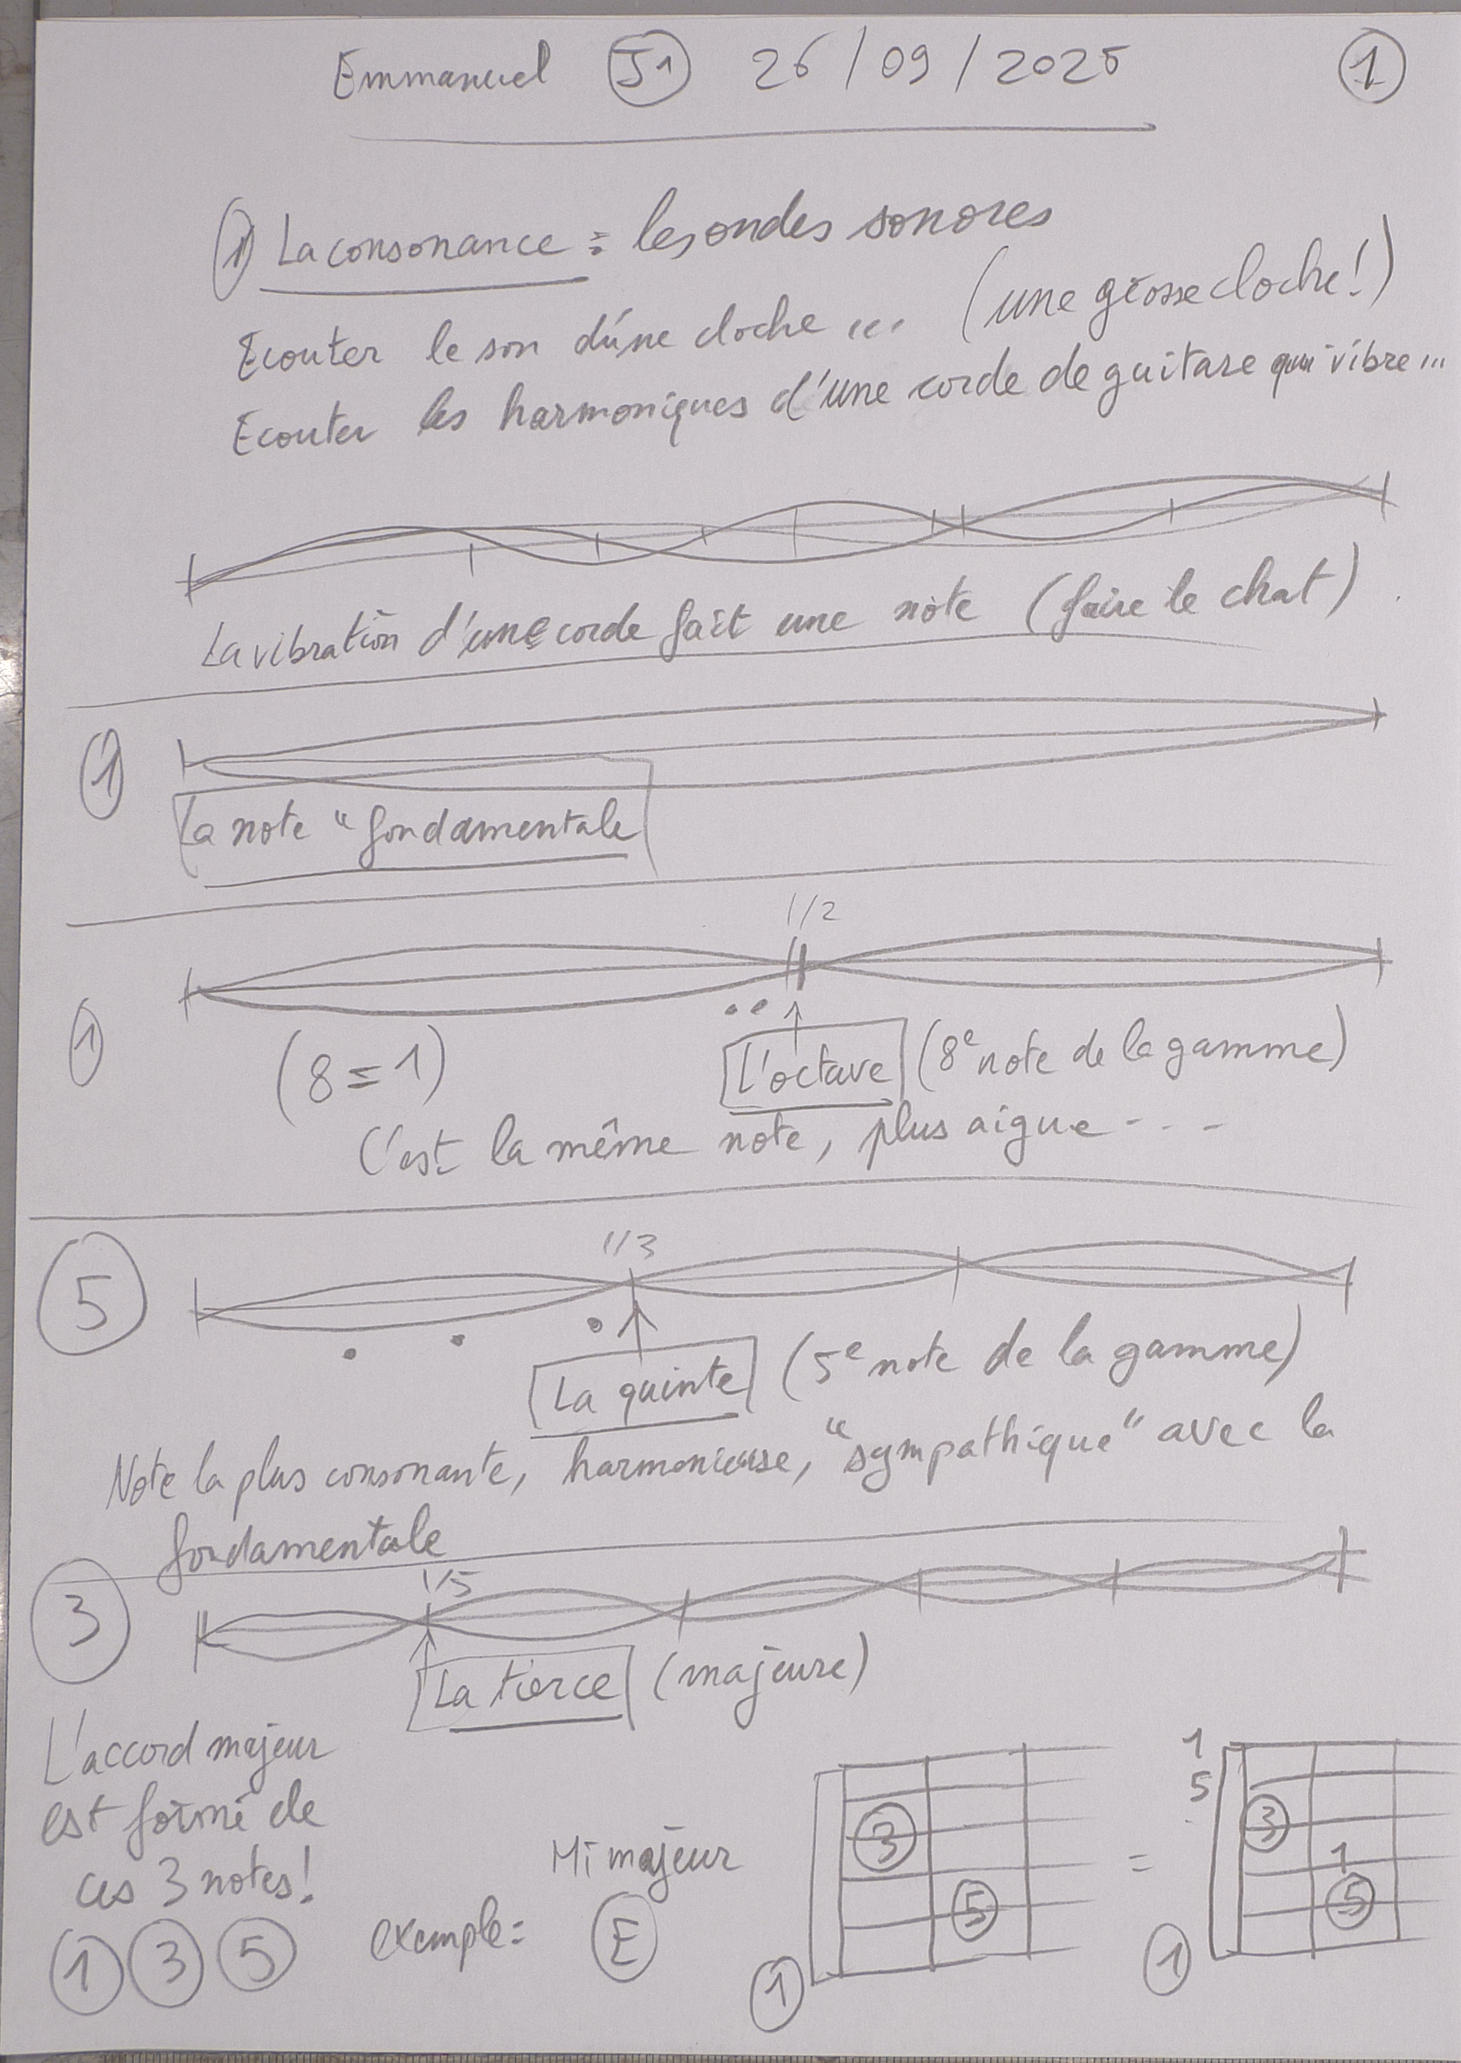 Emmanuel J1 26/09/2025 1
1 La consonance = les ondes sonores
Ecouter le son d'une cloche ... (une grosse cloche!)
Ecouter les harmoniques d'une corde de guitare qui vibre ...
La vibration d'une corde fait une note (faire le chat)
1
La note "fondamentale
1/2
1
(8 = 1)
L'octave (8e note de la gamme)
C'est la même note, plus aigue - - -
1/3
5
La quinte (5e note de la gamme)
Note la plus consonante, harmonieuse, "sympathique" avec la
fondamentale
1/5
3
La tierce (majeure)
L'accord majeur
est formé de
ces 3 notes!
1 3 5
exemple =
Mi majeur
E
3
5
1
=
1
5
3
1
5
1